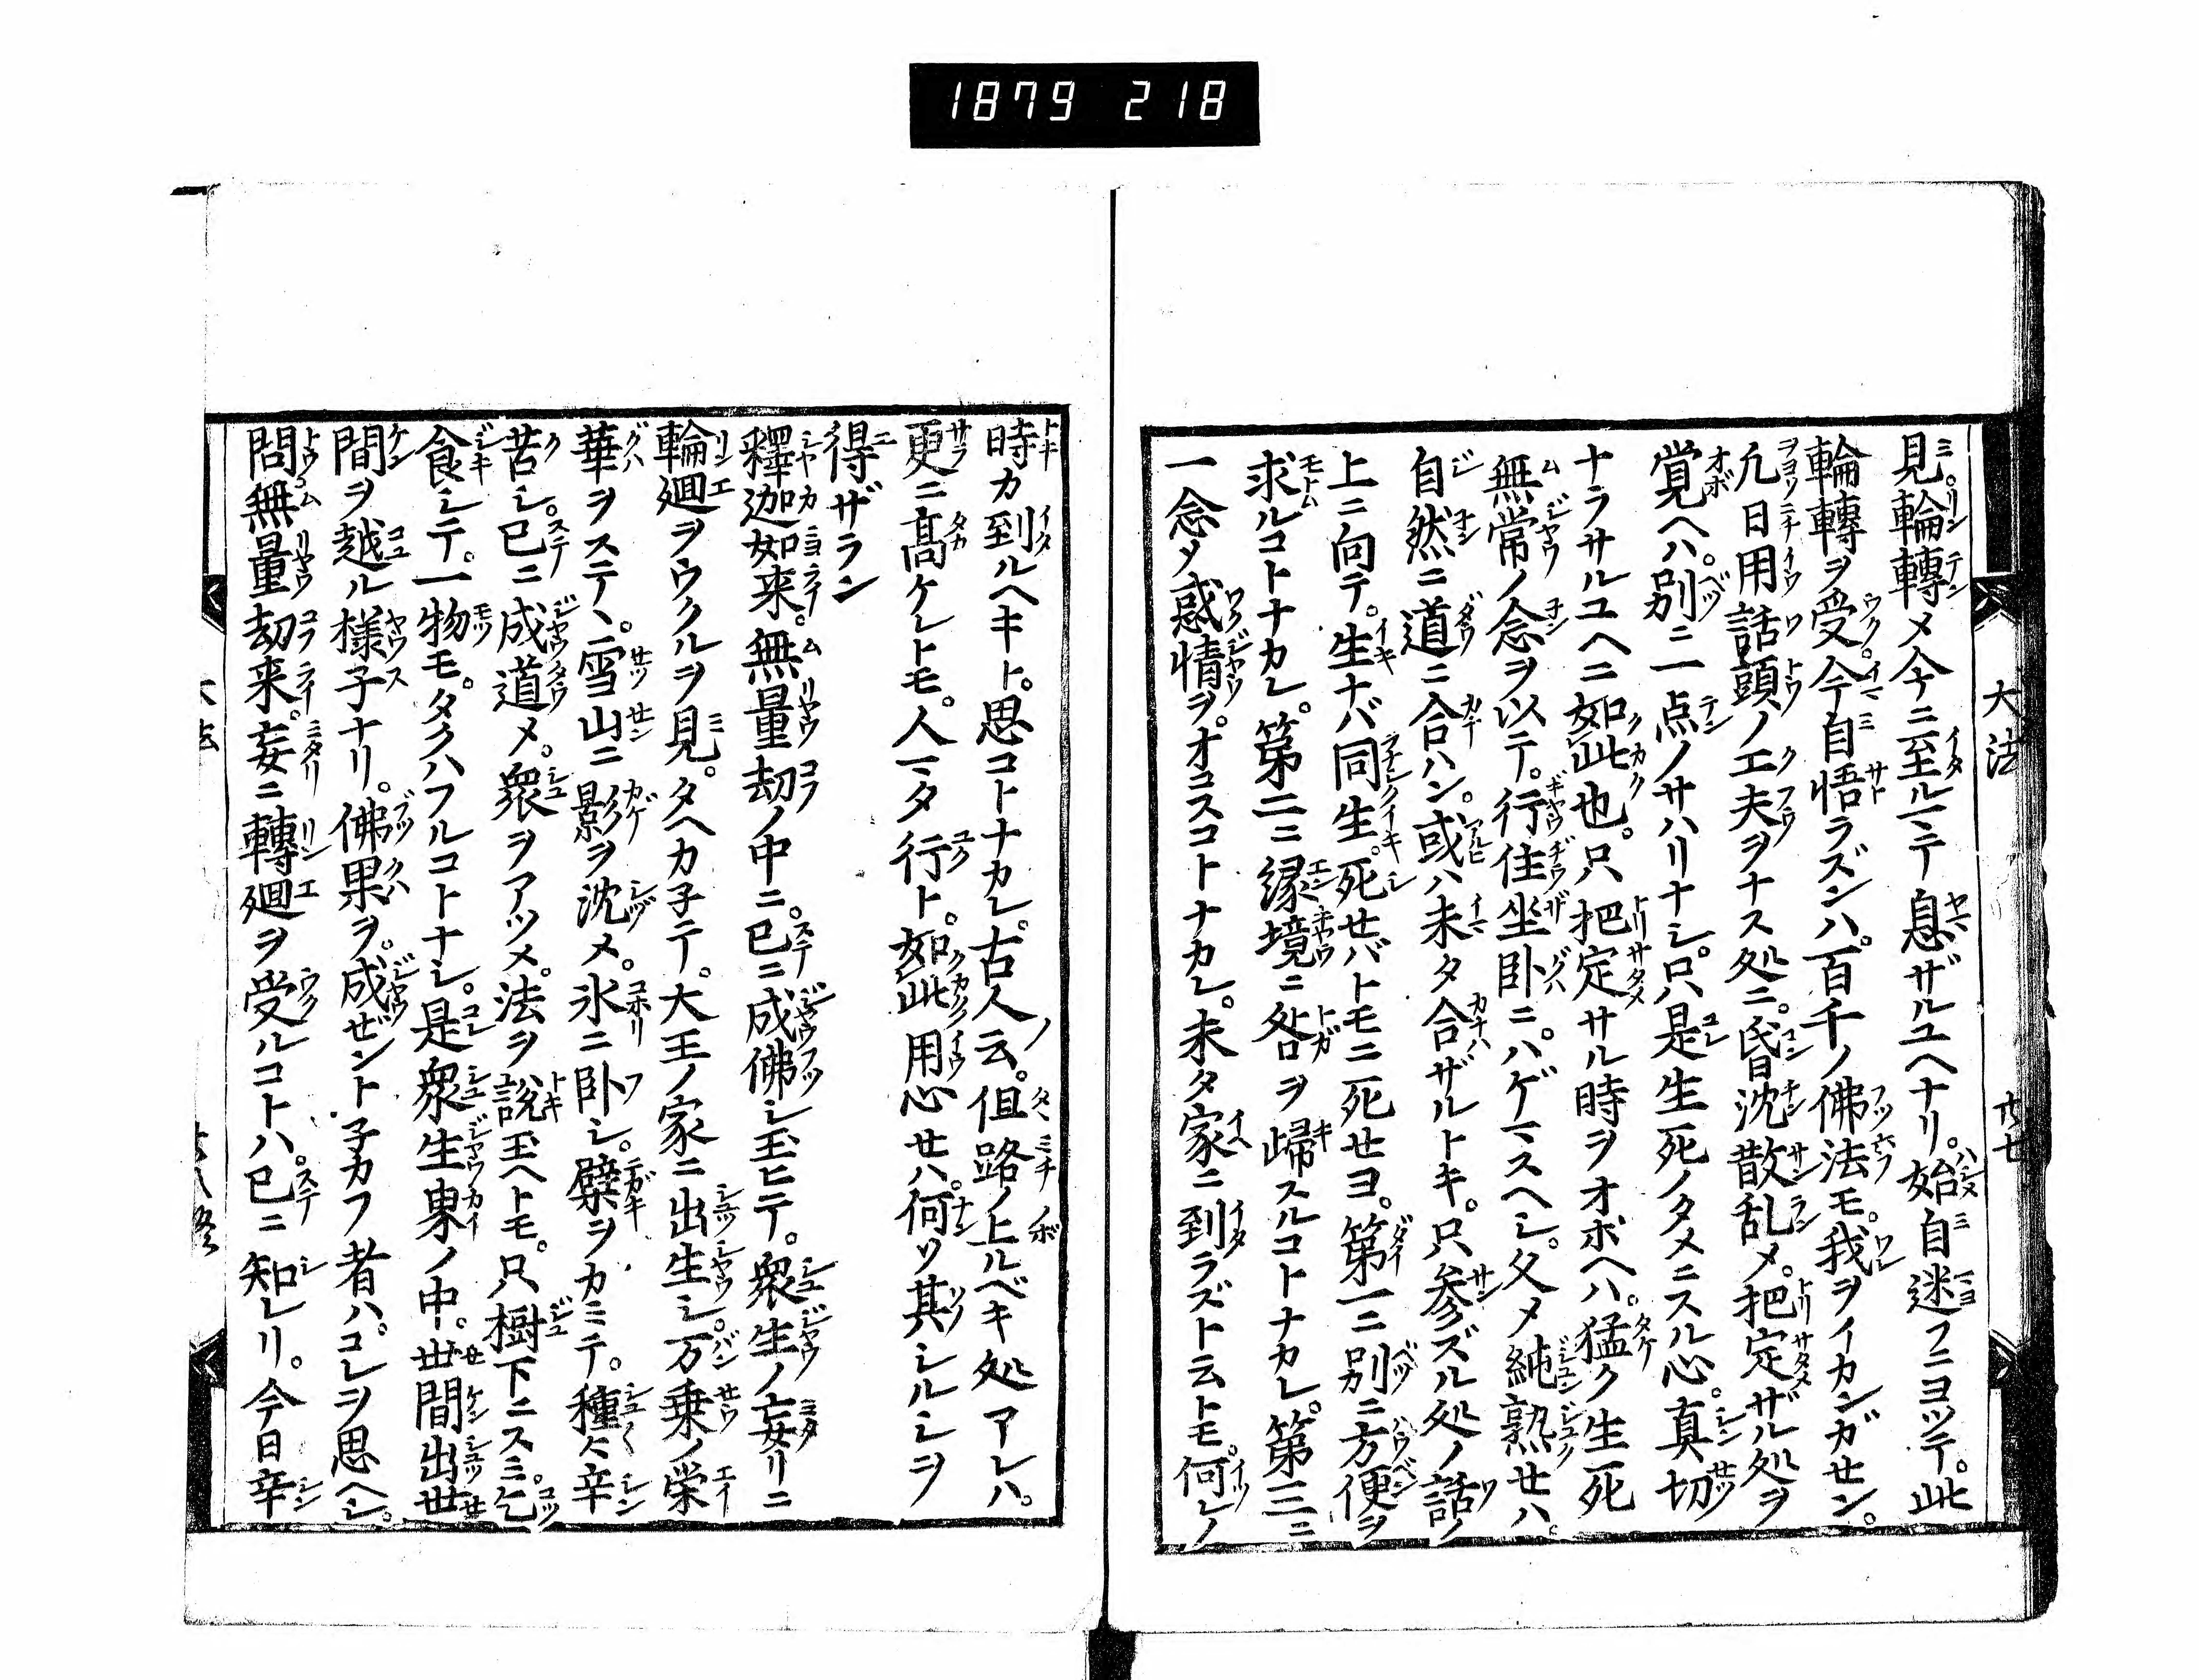 1879 218
見輪轉メ今ニ至ルマテ息ザルユヘナリ。始自迷フニヨツテ。此
輪轉ヲ受。今自悟ラズンハ。百千ノ佛法モ。我ヲイカンガセン。
凢日用話頭ノ工夫ヲナス処ニ。昏沈散乱メ。把定ザル処ヲ
覚ヘハ。別ニ一点ノサハリナシ。只是生死ノタメニスル心。真切
ナラサルユヘニ如此也。只把定サル時ヲオボヘハ。猛ク生死
無常ノ念ヲ以テ。行住坐卧ニ。ハゲマスヘシ。久メ純熟セハ。
自然ニ道ニ合ハン。或ハ未タ合ザルトキ。只参ズル処ノ話ノ
上ニ向テ。生ナバ同生。死セバトモニ死セヨ。第一ニ別ニ方便ヲ
求ルコトナカレ。第二ニ縁境ニ咎ヲ歸スルコトナカレ。第三ニ
一念メ惑情ヲ。オコスコトナカレ。未タ家ニ到ラズト云トモ。何レノ
大法
廿七
時カ到ルヘキト。思コトナカレ。古人云。但路ノ上ルベキ処アレハ。
更ニ髙ケレトモ。人マタ行ト。如此用心セハ。何ソ其シルシヲ
得ザラン
釋迦如来。無量劫ノ中ニ。已ニ成佛シ玉ヒテ。衆生ノ妄リニ
輪廻ヲウクルヲ見。タヘカ子テ。大王ノ家ニ出生シ。万乗ノ栄
華ヲステヽ。雪山ニ影ヲ沈メ。氷ニ卧シ。檗ヲカミテ。種々辛
苦シ。已ニ成道メ。衆ヲアツメ。法ヲ説玉ヘトモ。只樹下ニスミ。乞
食シテ。一物モ。タクハフルコトナシ。是衆生界ノ中。世間出世
間ヲ越ル様子ナリ。佛果ヲ。成ゼント子カフ者ハ。コレヲ思ヘシ。
問無量劫来。妄ニ轉廻ヲ受ルコトハ。已ニ知レリ。今日辛